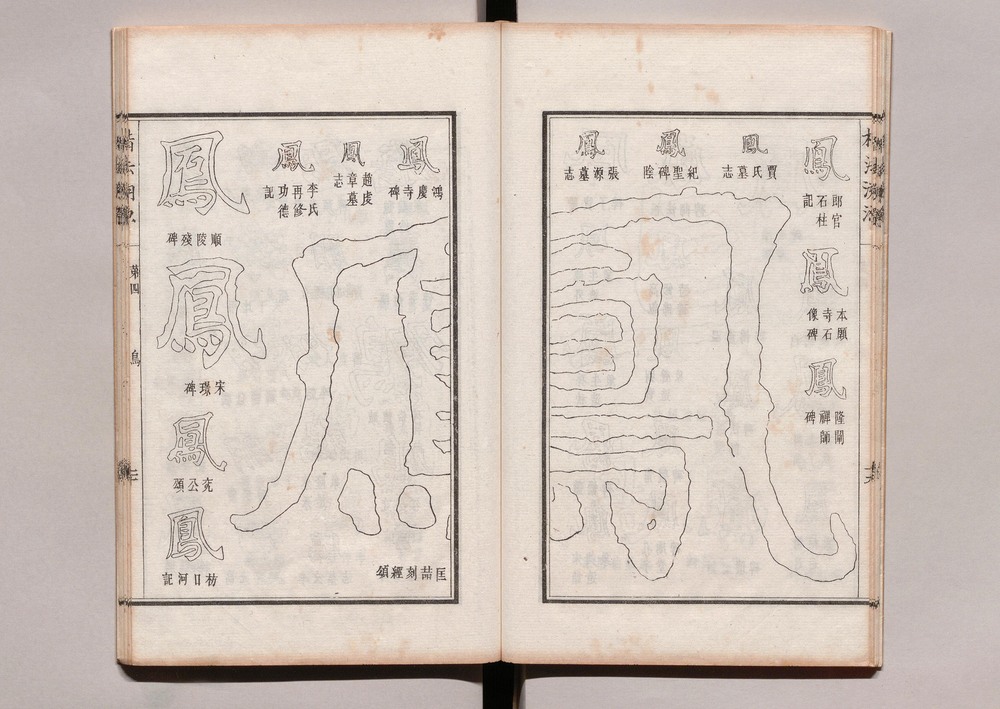 鳳
郎官
石柱
記
鳳
本願
寺石
像碑
鳳
隆闡
禪師
碑
鳳
賈氏墓志
鳳
紀聖碑陰
鳳
張源墓志
鳳
匡喆刻經頌
鳳
鴻慶寺碑
鳳
趙虔
章墓
志
鳳
李氏
再修
功德
記
鳳
順陵殘碑
鳳
宋璟碑
鳳
兖公頌
鳳
枋口河記
楷法溯源
第四
鳥